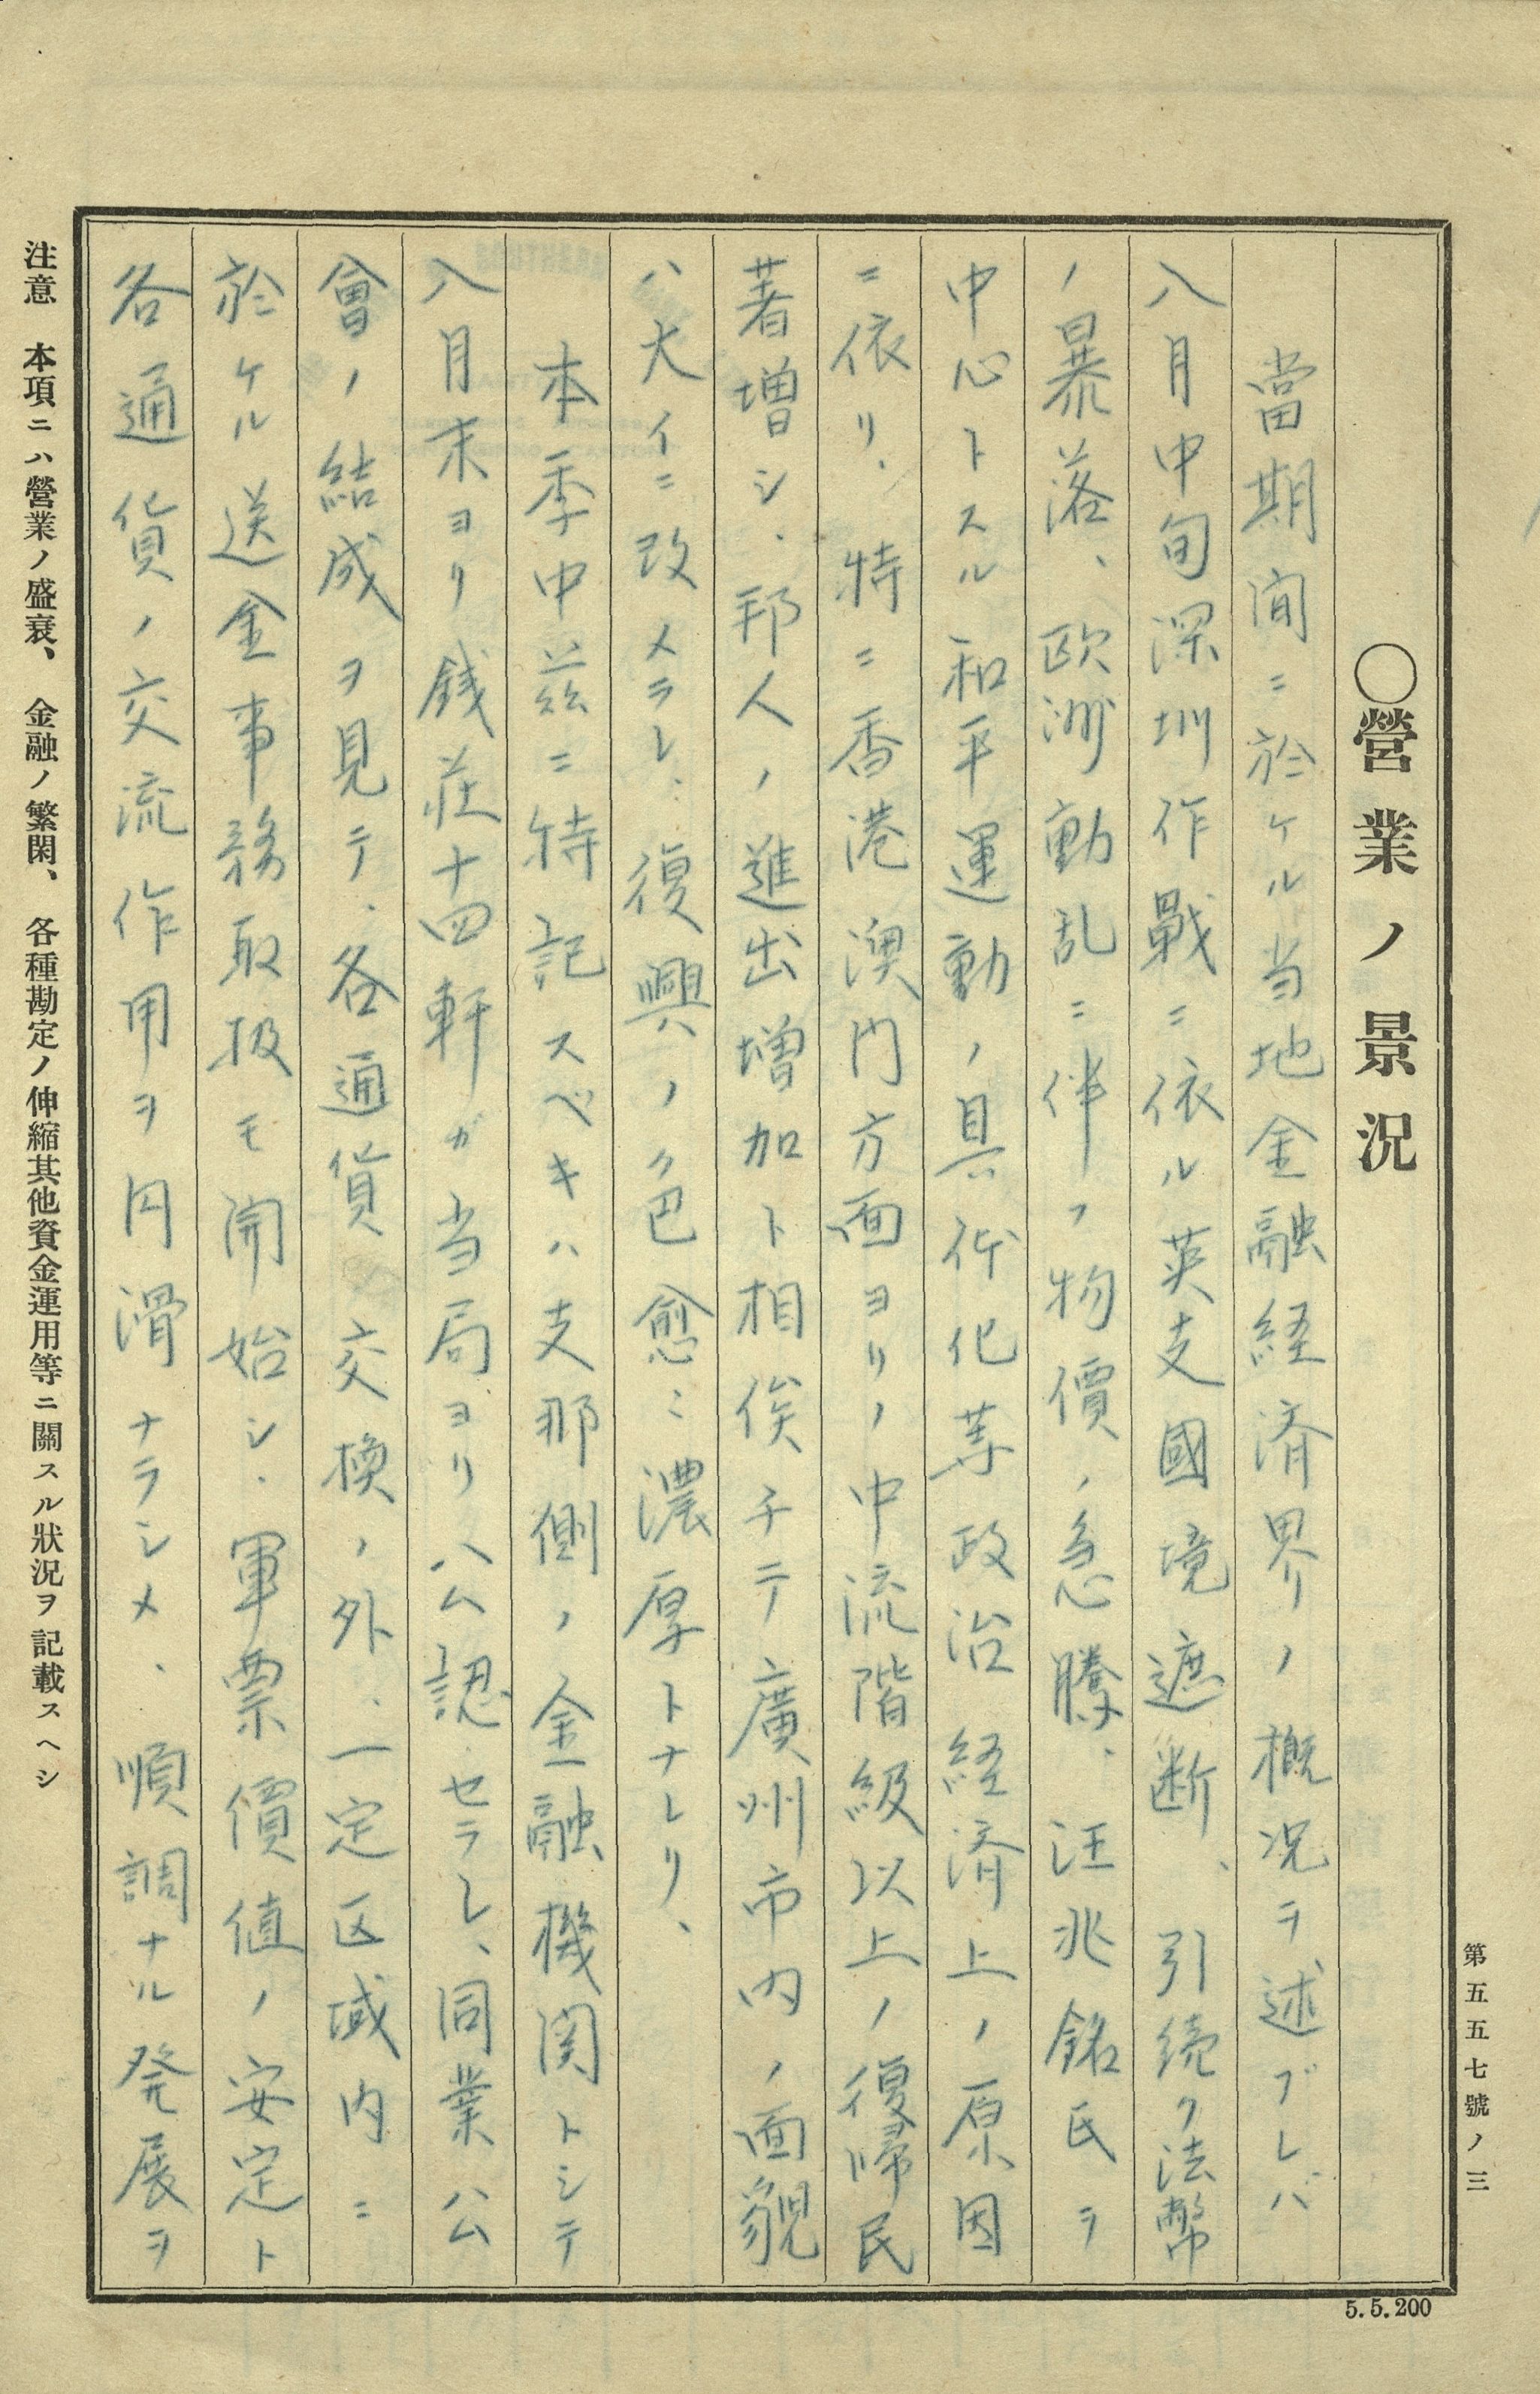 第五五七號ノ三
○營業ノ景況
當期間ニ於ケル当地金融経済界ノ概況ヲ述ブレバ
八月中旬深圳作戰ニ依ル英支國境遮断、引続ク法幣
ノ暴落、欧洲動乱ニ伴フ物價ノ急騰、汪兆銘氏ヲ
中心トスル和平運動ノ具体化等政治経済上ノ原因
ニ依リ、特ニ香港澳門方面ヨリノ中流階級以上ノ復帰民
著増シ、邦人ノ進出増加ト相俟チテ廣州市内ノ面貌
ハ大イニ改メラレ、復興ノ色愈ミ濃厚トナレリ、
本季中茲ニ特記スベキハ支那側ノ金融機関トシテ
八月末ヨリ銭莊十四軒ガ当局ヨリ公認セラレ、同業公
會ノ結成ヲ見テ、各通貨交換ノ外、一定区域内ニ
於ケル送金事務取扱モ開始シ、軍票價値ノ安定ト
各通貨ノ交流作用ヲ円滑ナラシメ、順調ナル発展ヲ
注意 本項ニハ營業ノ盛衰、金融ノ繁閑、各種勘定ノ伸縮其他資金運用等ニ關スル狀況ヲ記載スヘシ
5.5.200